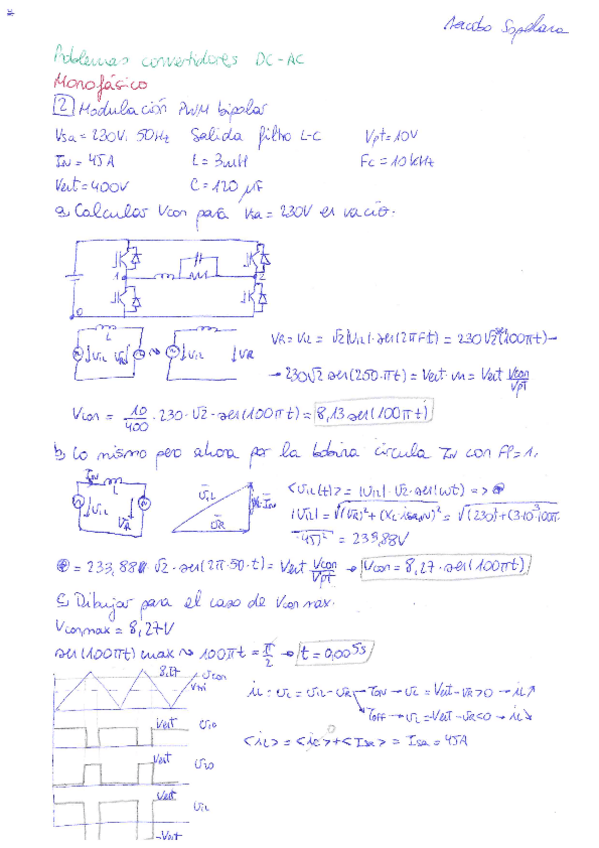 Problemas convertidores DC-AC
Monofásico
2 Modulación PWM bipolar
Vsa = 230V, 50Hz Salida filtro L-C Vpt = 10V
IN = 45A L = 3mH Fc = 10kHz
Vert = 400V C = 120 µF
a) Calcular Vcon para Vsa = 230V en vacío.
1 2
0
L
VR = ViL = √2|ViL|·sen(2πft) = 230√2 (100πt) →
→ 230√2 sen(250·πt) = Vert·m = Vert Vcon/Vpt
Vcon = 10/400 · 230·√2·sen(100πt) = 8,13 sen(100πt)
b) Lo mismo pero ahora por la bobina circula IN con FP=1.
IN
L
ViL VR
<ViL(t)> = |ViL|·√2·sen(ωt) =>
|ViL| = √((VR)²+(XL·isa,N)²) = √((230)²+(3·10⁻³·100π·
45)²) = 233,88V
= 233,88 √2·sen(2π·50·t) = Vert Vcon/Vpt → Vcon = 8,27·sen(100πt)
c) Dibujar para el caso de Vcon max.
Vcon,max = 8,27V
sen(100πt) max → 100πt = π/2 → t = 0,005s
8,27 Vcon
Vtri
iL: vL = ViL - VR → TON → vL = Vert - VR > 0 → iL↗
TOFF → vL = -Vert - VR < 0 → iL↘
<iL> = <ic> + <Isa> = Isa = 45A
0
Vert V10
Vert V20
Vert ViL
-Vert